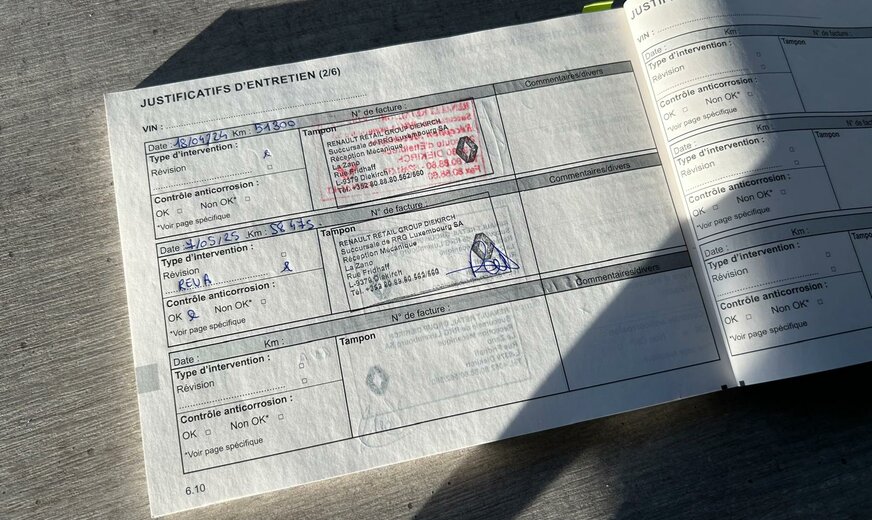 JUSTIFICATIFS D'ENTRETIEN (2/6)
VIN :
Date : 18/04/24 Km : 51300 N° de facture :
Type d'intervention :
Révision
Contrôle anticorrosion :
OK Non OK*
*Voir page spécifique
Tampon
RENAULT RETAIL GROUP DIEKIRCH
Succursale de RRG Luxembourg SA
Réception Mécanique
La Zano
Rue Fridhaff
L-9379 Diekirch
Tél. +352 80.88.80.562/560
Commentaires/divers
Date : 7/05/25 Km : 58475 N° de facture :
Type d'intervention :
Révision
REVA
Contrôle anticorrosion :
OK Non OK*
*Voir page spécifique
Tampon
RENAULT RETAIL GROUP DIEKIRCH
Succursale de RRG Luxembourg SA
Réception Mécanique
La Zano
Rue Fridhaff
L-9379 Diekirch
Tél. +352 80.88.80.562/560
Commentaires/divers
Date : Km : N° de facture :
Type d'intervention :
Révision
Contrôle anticorrosion :
OK Non OK*
*Voir page spécifique
Tampon
Commentaires/divers
6.10
VIN :
Date : Km :
Type d'intervention :
Révision
Contrôle anticorrosion :
OK Non OK*
*Voir page spécifique
Tampon
Date : Km :
Type d'intervention :
Révision
Contrôle anticorrosion :
OK Non OK*
*Voir page spécifique
Tampon
Date : Km :
Type d'intervention :
Révision
Contrôle anticorrosion :
OK Non OK*
*Voir page spécifique
Tampon